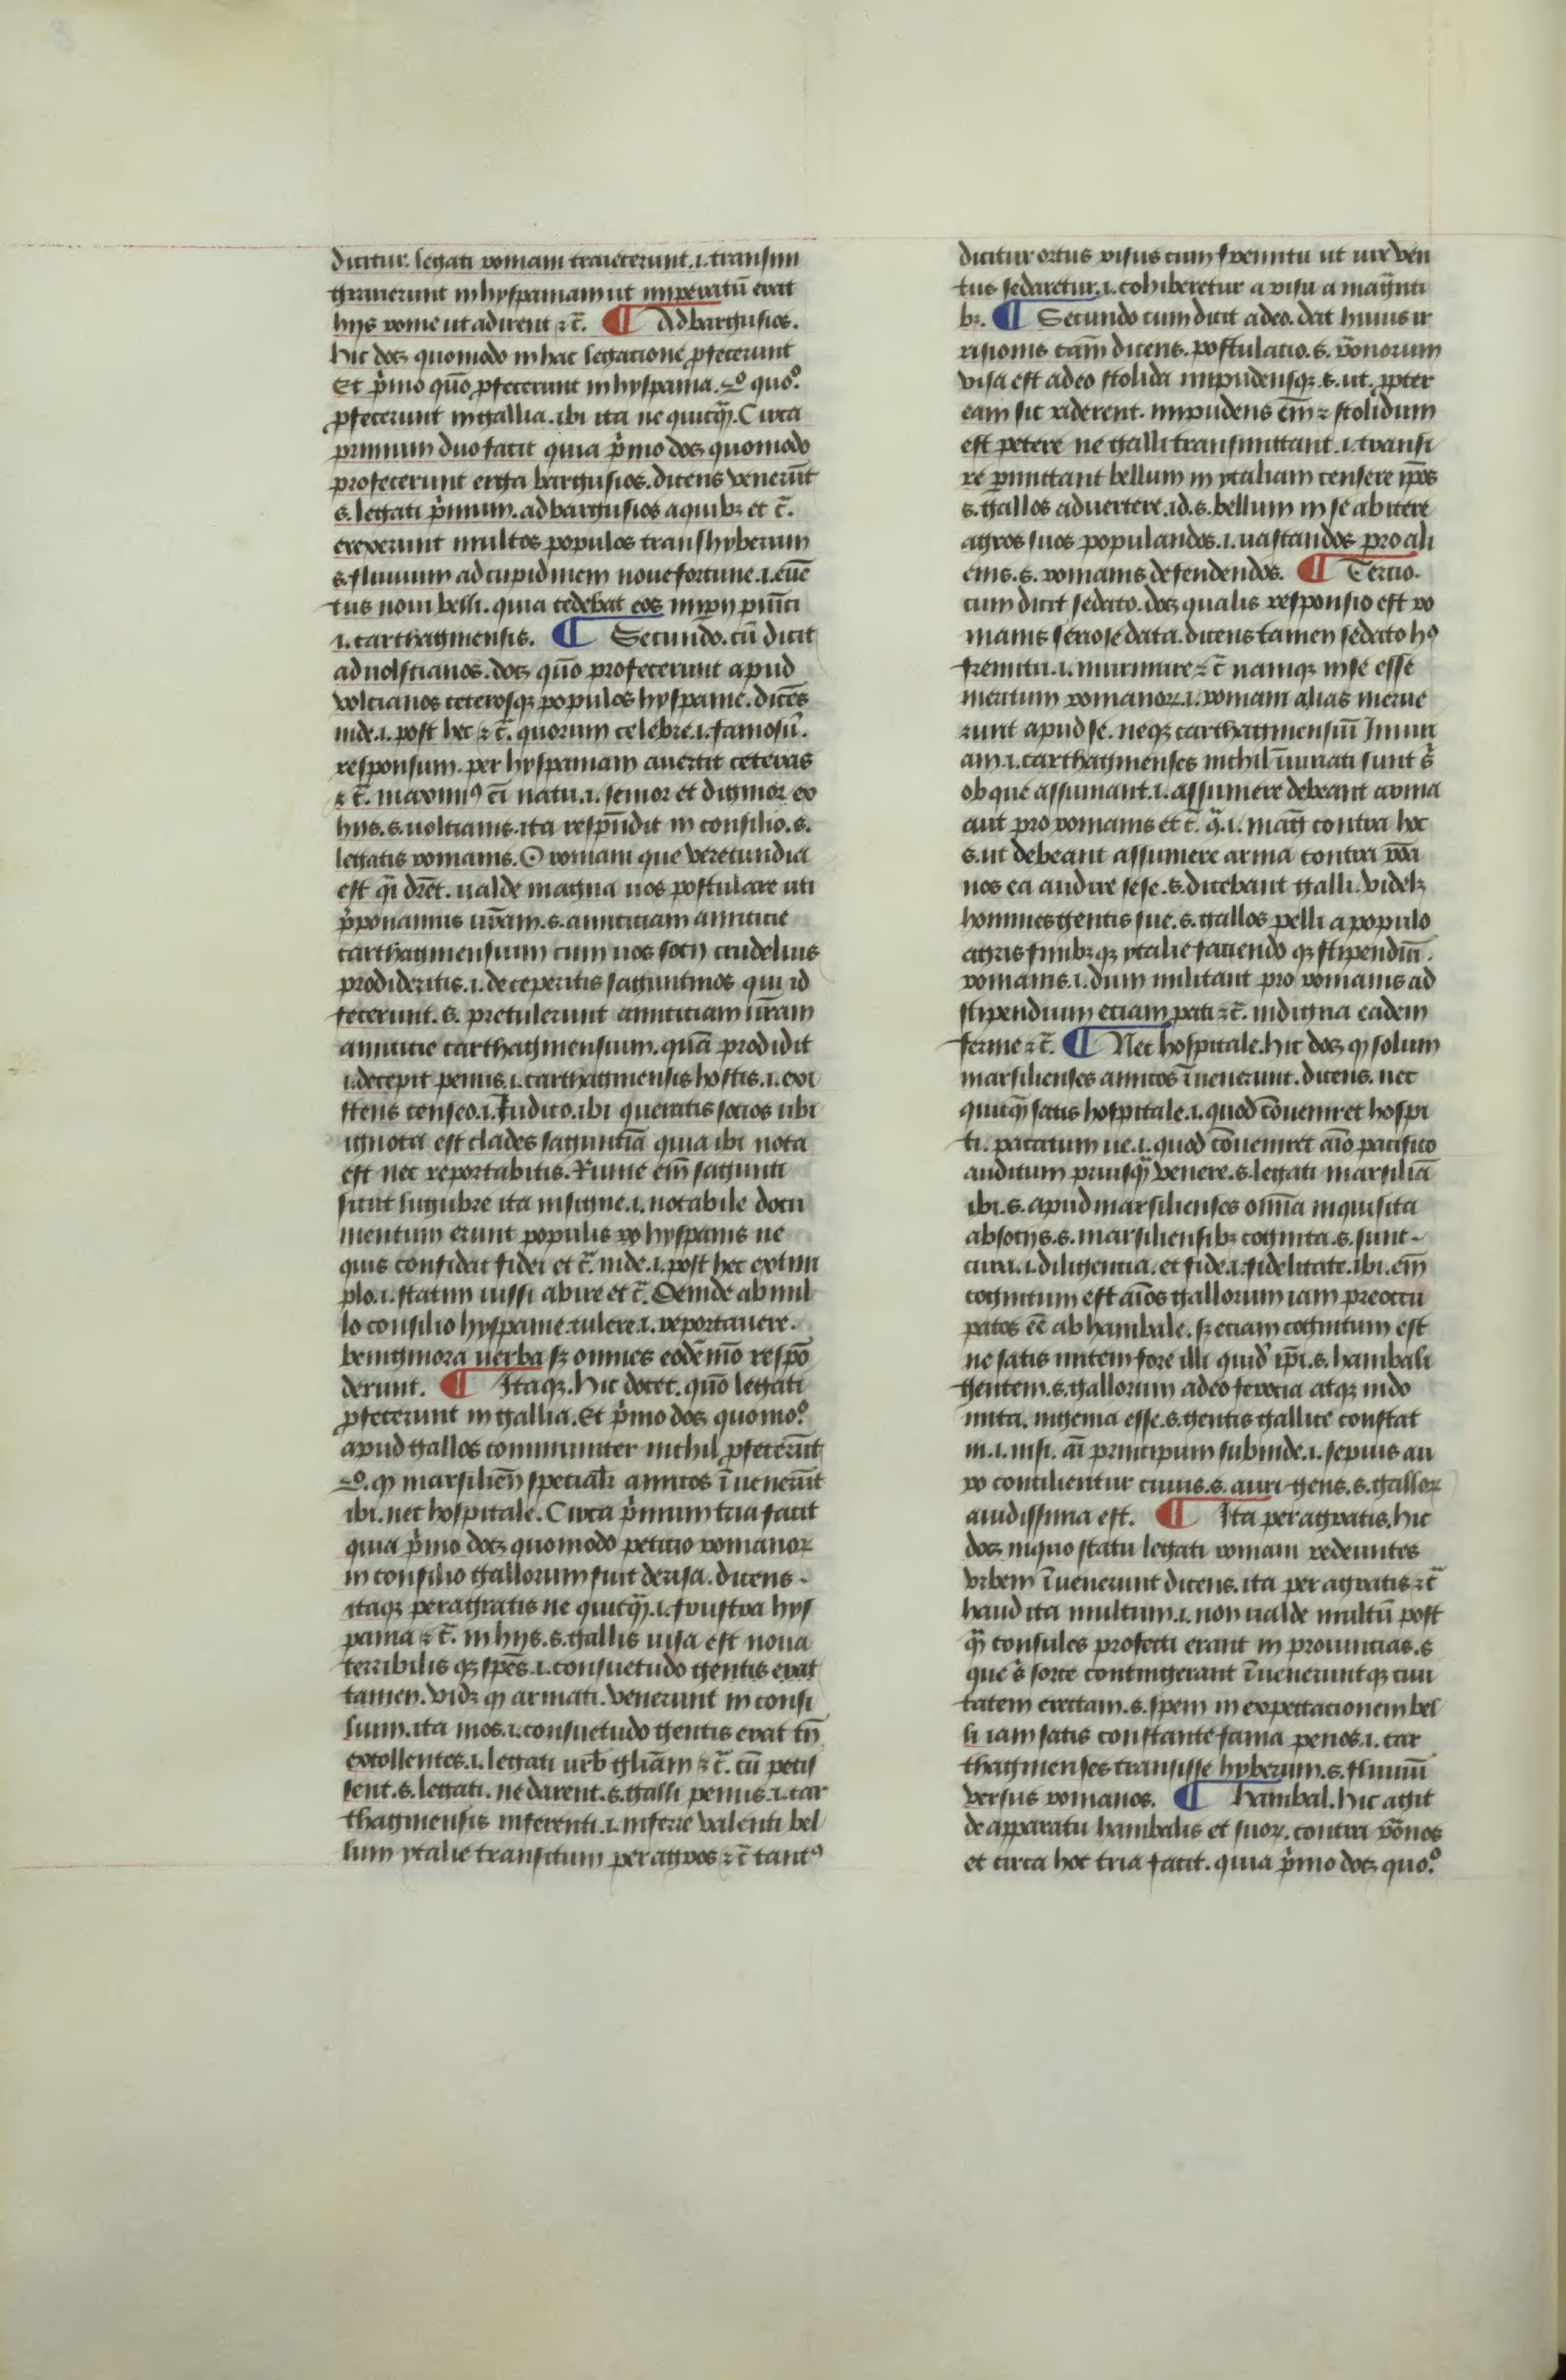 dicitur. legati romam traiecerunt .i. transmi
grauerunt in hyspaniam ut imperatū erat
hijs rome ut adirent ⁊ c̃. ¶ Ad bargusios.
hic docꝫ quomodo in hac legatione ꝓfecerunt
Et p̉mo quō ꝓfecerunt in hyspania. 2o quoº
ꝓfecerunt in gallia. ibi ita ne quicq̄. Circa
primum duo facit quia p̉mo docꝫ quomodo
profecerunt erga bargusios. dicens venerūt
.s. legati p̉mum. ad bargusios a quibꝫ et c̃.
erexerunt multos populos trans hyberum
.s. fluuium ad cupidinem noue fortune .i. euē
tus noui belli. quia tedebat eos imperij punici
.i. carthaginensis. ¶ Secundo. cū dicit
ad uolscianos. docꝫ quō profecerunt apud
volcianos ceterosqꝫ populos hyspanie. dicēs
inde .i. post hec ⁊ c̃. quorum celebre .i. famosū.
responsum. per hyspaniam auertit ceteras
⁊ c̃. maximꝰ eī natu .i. senior et dignior ex
hijs .s. uolcianis. ita respōdit in consilio .s.
legatis romanis. O romani que verecundia
est q̄i drēt. ualde magna uos postulare uti
p̉ponamus urām .s. amiciciam amicicie
carthaginensium cum uos socij crudelius
prodideritis .i. deceperitis saguntinos qui id
fecerunt .s. pretulerunt amiciciam ur̄am
amicicie carthaginensium. quā prodidit
.i. decepit penus .i. carthaginensis hostis .i. exi
stens censeo .i. Iudico. ibi queratis socios ubi
ignota est clades saguntīa quia ibi nota
est nec reportabitis. Ruine em̄ sagunti
sicut lugubre ita insigne .i. notabile docu
mentum erunt populis ꝓ hyspanis ne
quis confidat fidei et c̃. inde .i. post hec extim
plo .i. statim iussi abire et c̃. Deinde ab nul
lo consilio hyspanie. tulere .i. reportauere.
benigniora uerba sꝫ omnes eodē mō respō
derunt. ¶ Itaqꝫ. Hic docet. quō legati
ꝓfecerunt in gallia. Et p̉mo docꝫ quomoº
apud gallos communiter nichil ꝓfecerūt
2o. qꝫ marsilien̄ specialr̄ amicos īuenerūt
ibi. nec hospitale. Circa p̉mum tria facit
quia p̉mo docꝫ quomodo peticio romanoꝝ
in consilio gallorum fuit derisa. dicens.
itaqꝫ peragratis ne quicq̄ .i. frustra hys
pania ⁊ c̃. in hijs .s. gallis uisa est noua
terribilis qꝫ spēs .i. consuetudo gentis erat
tamen. vidꝫ qꝫ armati. venerunt in consi
lium. ita mos .i. consuetudo gentis erat tn̄
extollentes .i. legati urb̄ gliām ⁊ c̃. cū petis
sent .s. legati. ne darent .s. galli penus .i. car
thaginensis inferenti .i. inferre valenti bel
lum ytalie transitum per agros ⁊ c̃ tantꝰ
dicitur ortus risus cum fremitu ut uix ven
tus sedaretur .i. cohiberetur a risu a magn̄ti
bꝫ. ¶ Secundo cum dicit adeo. dat huius ir
risionis cām dicens. postulatio .s. rōnorum
visa est adeo stolida impudensqꝫ .s. ut. ꝓpter
eam sit riderent. impudens em̄ ⁊ stolidum
est petere ne galli transmittant .i. transi
re ꝑmittant bellum in ytaliam censere ip̄os
.s. gallos aduertere .id. s. bellum in se abicere
agros suos populandos .i. uastandos pro ali
enis .s. romanis defendendos. ¶ Tercio.
cum dicit sedato. docꝫ qualis responsio est ro
manis seriose data. dicens tamen sedato hº
fremitu .i. murmure ⁊ c̃ namqꝫ in se esse
meritum romanoꝝ .i. romani alias merue
runt apud se. neqꝫ carthaginensiū Iniuri
am .i. carthaginenses nichil īuriati sunt s̉
ob que assumant .i. assumere debeant arma
aut pro romanis et c̃. q̄ .i. maḡ contra hoc
.s. ut debeant assumere arma contra rōa
nos ea audire sese .s. dicebant galli. videlꝫ
homines gentis sue .s. gallos pelli a populo
agris finibꝫqꝫ ytalie faciendo qꝫ stipendiū.
romanis .i. dum militant pro romanis ad
stipendium eciam pati ⁊ c̃. indigna eadem
ferme ⁊ c̃. ¶ Nec hospitale. hic docꝫ qꝫ solum
marsilienses amicos īuenerunt. dicens. nec
quicq̄ satis hospitale .i. quod cōueniret hospi
ti. pacatum ue .i. quod cōueniret aīo pacifico
auditum priusq̄ venere .s. legati marsiliā
ibi .s. apud marsilienses om̄ia inquisita
ab socijs .s. marsiliensibꝫ cognita .s. sunt.
cura .i. diligencia. et fide .i. fidelitate. ibi. em̄
cognitum est aīos gallorum iam preoccu
patos eē ab hanibale. sꝫ eciam cognitum est
ne satis mitem fore illi quid' ip̄i .s. hanibali
gentem .s. gallorum adeo ferocia atqꝫ indo
mita. ingenia esse .s. gentis gallice constat
in .i. nisi. aī principum subinde .i. sepius au
ro concilientur cuius .s. auri gens .s. galloꝝ
auidissima est. ¶ Ita peragratis. hic
docꝫ in quo statu legati romani redeuntes
vrbem īuenerunt dicens. ita per agratis ⁊ c̃
haud ita multum .i. non ualde multū post
q̄ consules profecti erant in prouincias .s.
que s̉ sorte contingerant īueneruntqꝫ ciui
tatem erectam .s. spem in expectacionem bel
li iam satis constante fama penos .i. car
thaginenses transisse hyberum .s. fluuiū
versus romanos. ¶ Hanibal. hic agit
de apparatu hanibalis et suoꝝ. contra rōnos
et circa hoc tria facit. quia p̉mo docꝫ quoº